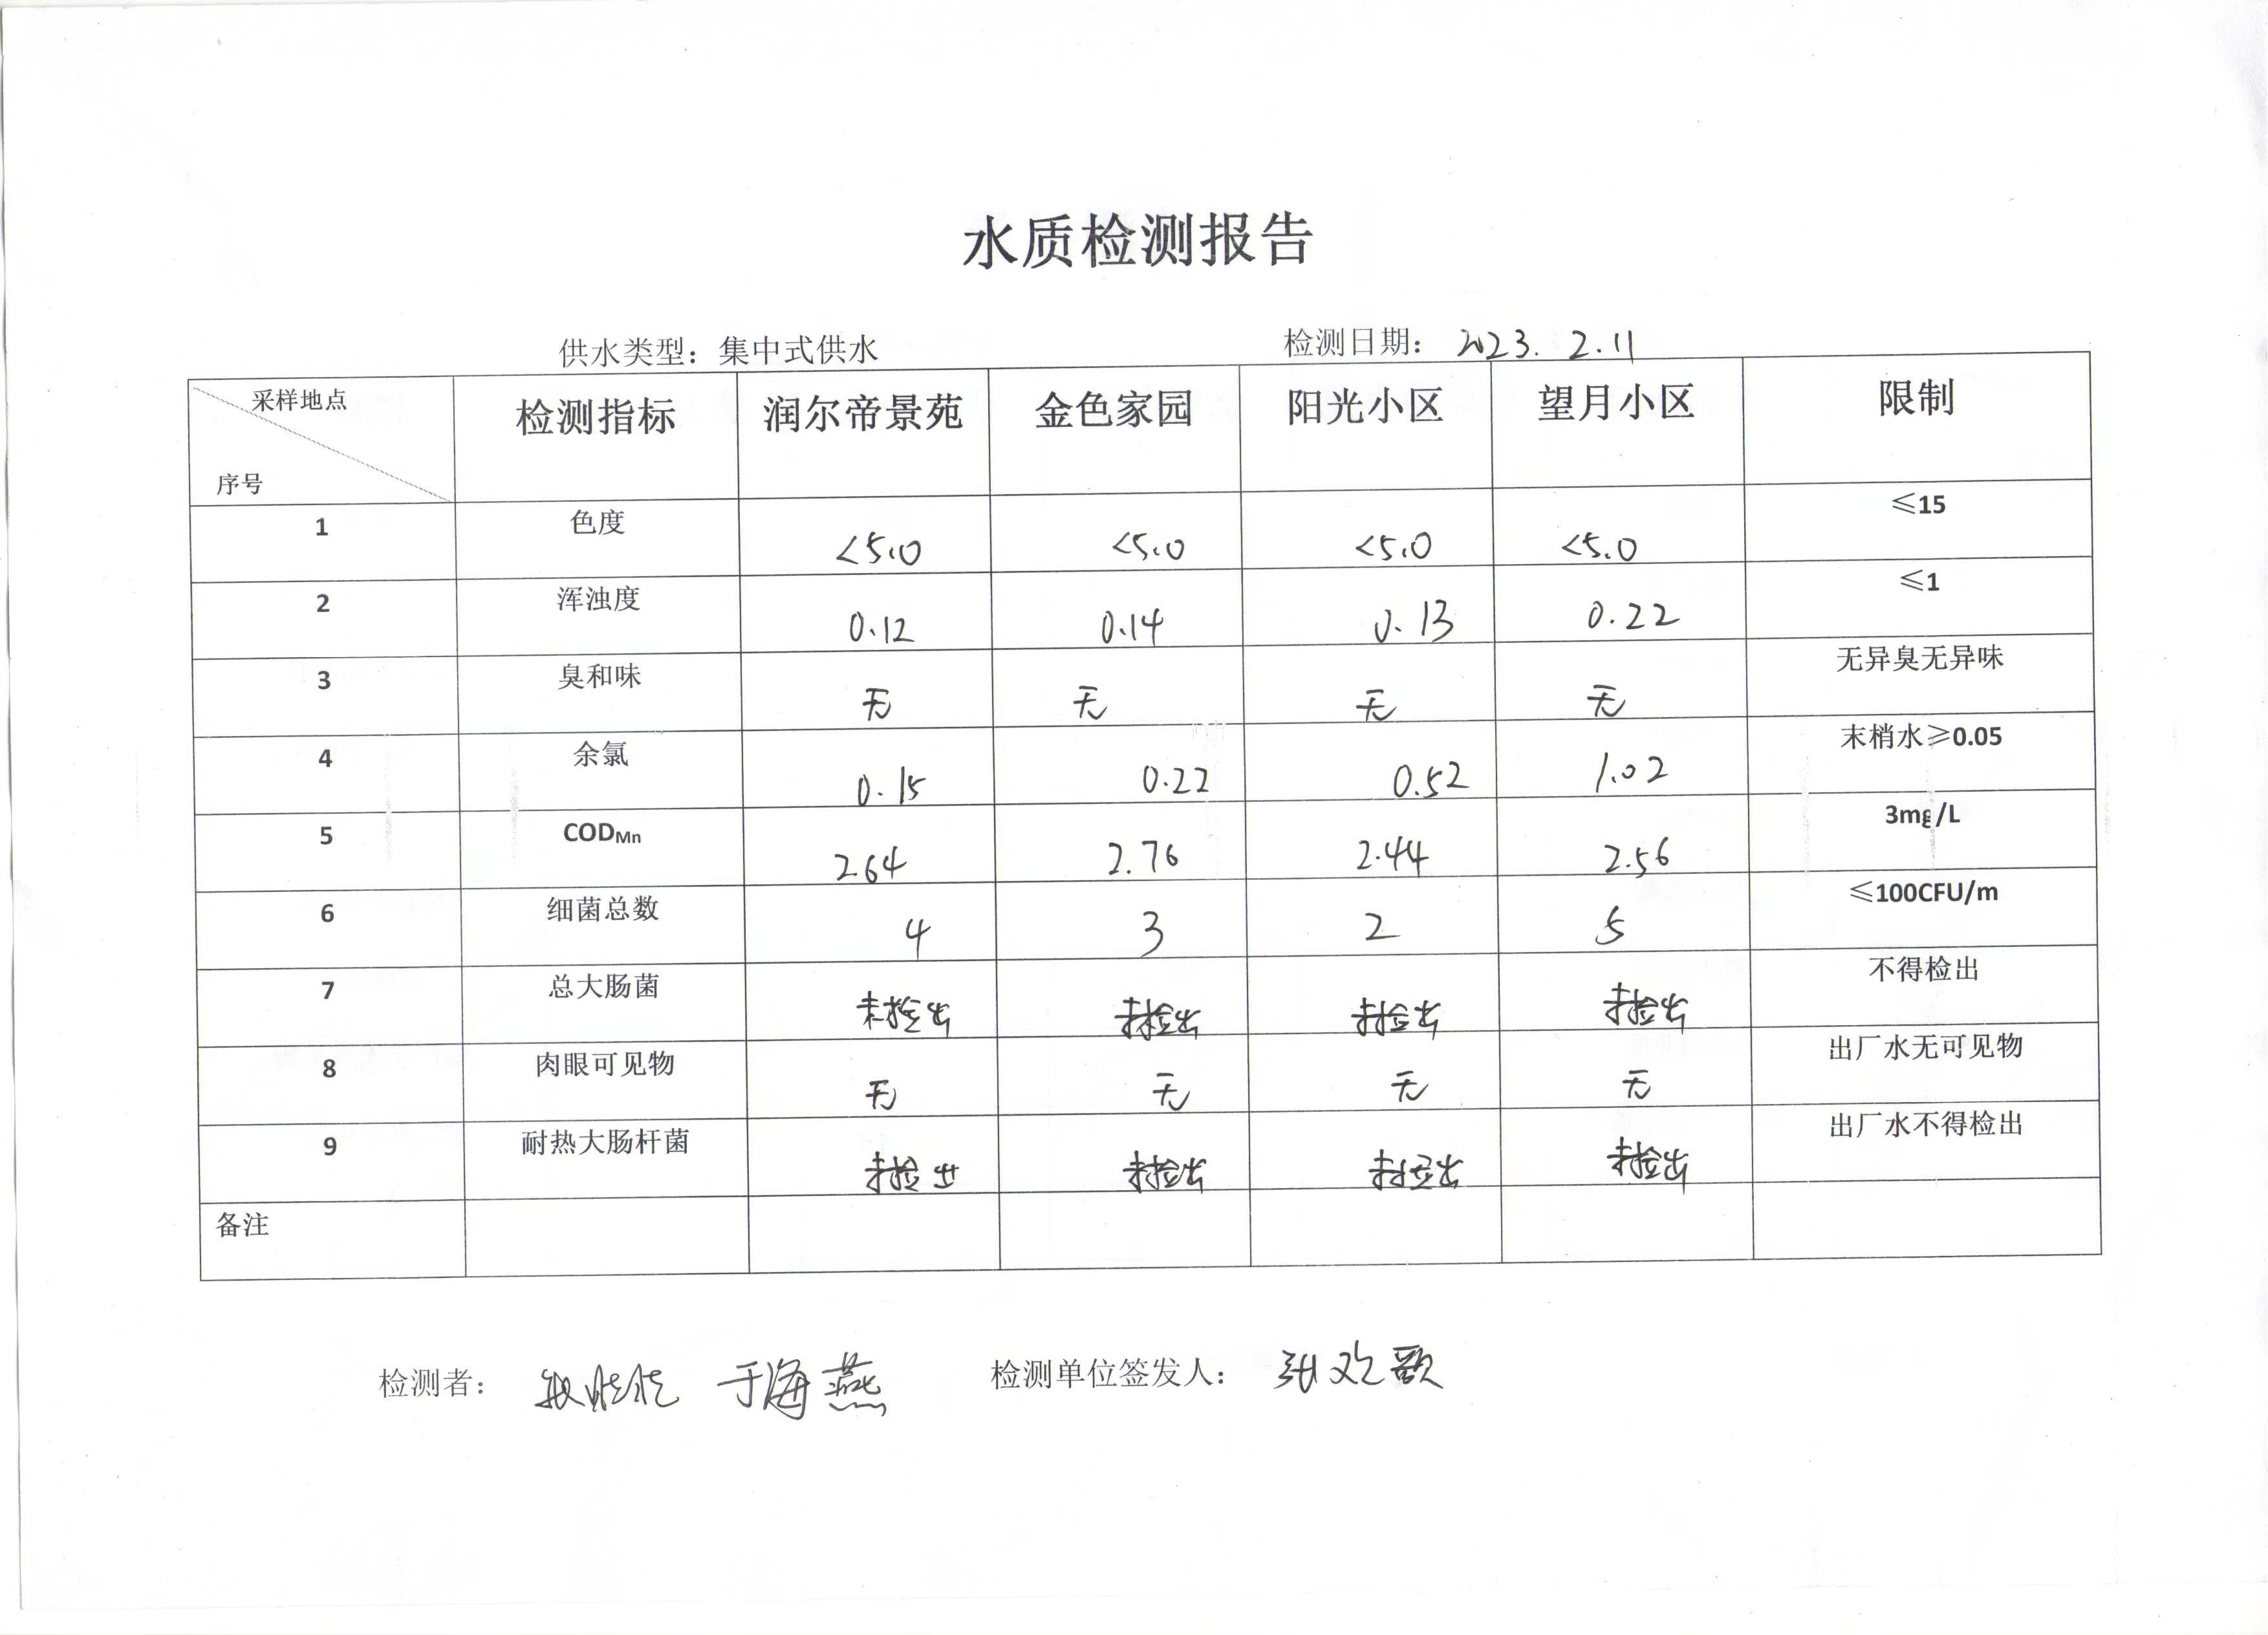 水质检测报告
供水类型：集中式供水 检测日期：2023. 2.11
采样地点 序号 检测指标 润尔帝景苑 金色家园 阳光小区 望月小区 限制
1 色度 <5.0 <5.0 <5.0 <5.0 ≤15
2 浑浊度 0.12 0.14 0.13 0.22 ≤1
3 臭和味 无 无 无 无 无异臭无异味
4 余氯 0.15 0.22 0.52 1.02 末梢水≥0.05
5 CODMn 2.64 2.76 2.44 2.56 3mg/L
6 细菌总数 4 3 2 5 ≤100CFU/m
7 总大肠菌 未检出 未检出 未检出 未检出 不得检出
8 肉眼可见物 无 无 无 无 出厂水无可见物
9 耐热大肠杆菌 未检出 未检出 未检出 未检出 出厂水不得检出
备注
检测者： 于海燕 检测单位签发人： 张欢歌